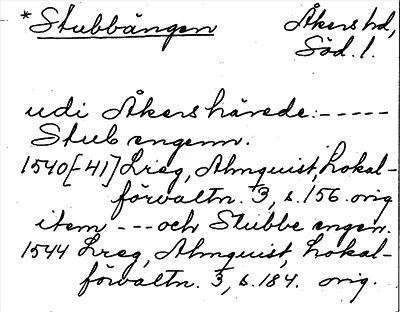 *Stubbängen Åkers hd,
Söd. l.
udi Åkers härede:-----
Stub engenn.
1540[-41] Lreg, Almquist, Lokal-
förvaltn. 3, s. 156. orig
item --- och Stubbe engen.
1544 Lreg, Almquist, Lokal-
förvaltn. 3, s. 184. orig.